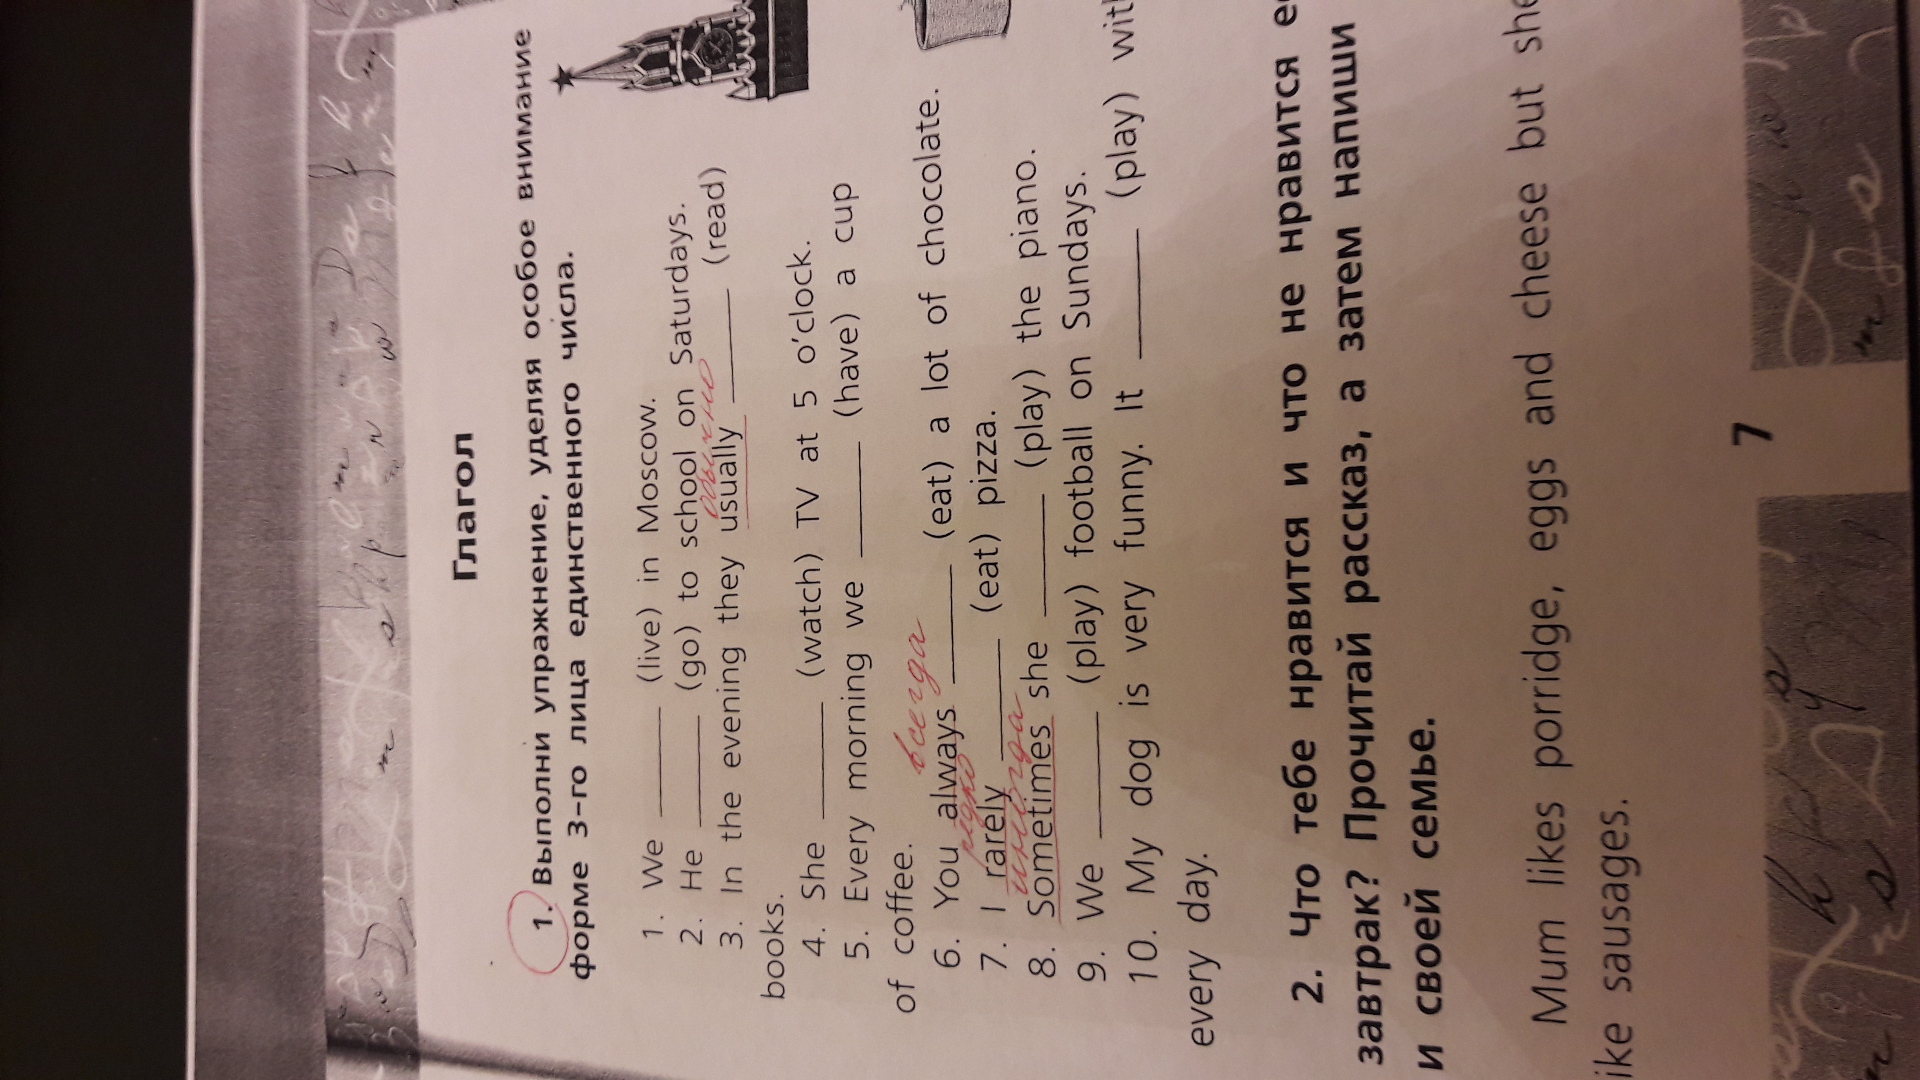 Глагол
1. Выполни упражнение, уделяя особое внимание
форме 3-го лица единственного числа.
1. We ______ (live) in Moscow.
2. He ______ (go) to school on Saturdays.
обычно
3. In the evening they usually ______ (read)
books.
4. She ______ (watch) TV at 5 o'clock.
5. Every morning we ______ (have) a cup
of coffee.
всегда
6. You always ______ (eat) a lot of chocolate.
редко
7. I rarely ______ (eat) pizza.
иногда
8. Sometimes she ______ (play) the piano.
9. We ______ (play) football on Sundays.
10. My dog is very funny. It ______ (play) with
every day.
2. Что тебе нравится и что не нравится
завтрак? Прочитай рассказ, а затем напиши
и своей семье.
Mum likes porridge, eggs and cheese but she
ike sausages.
7